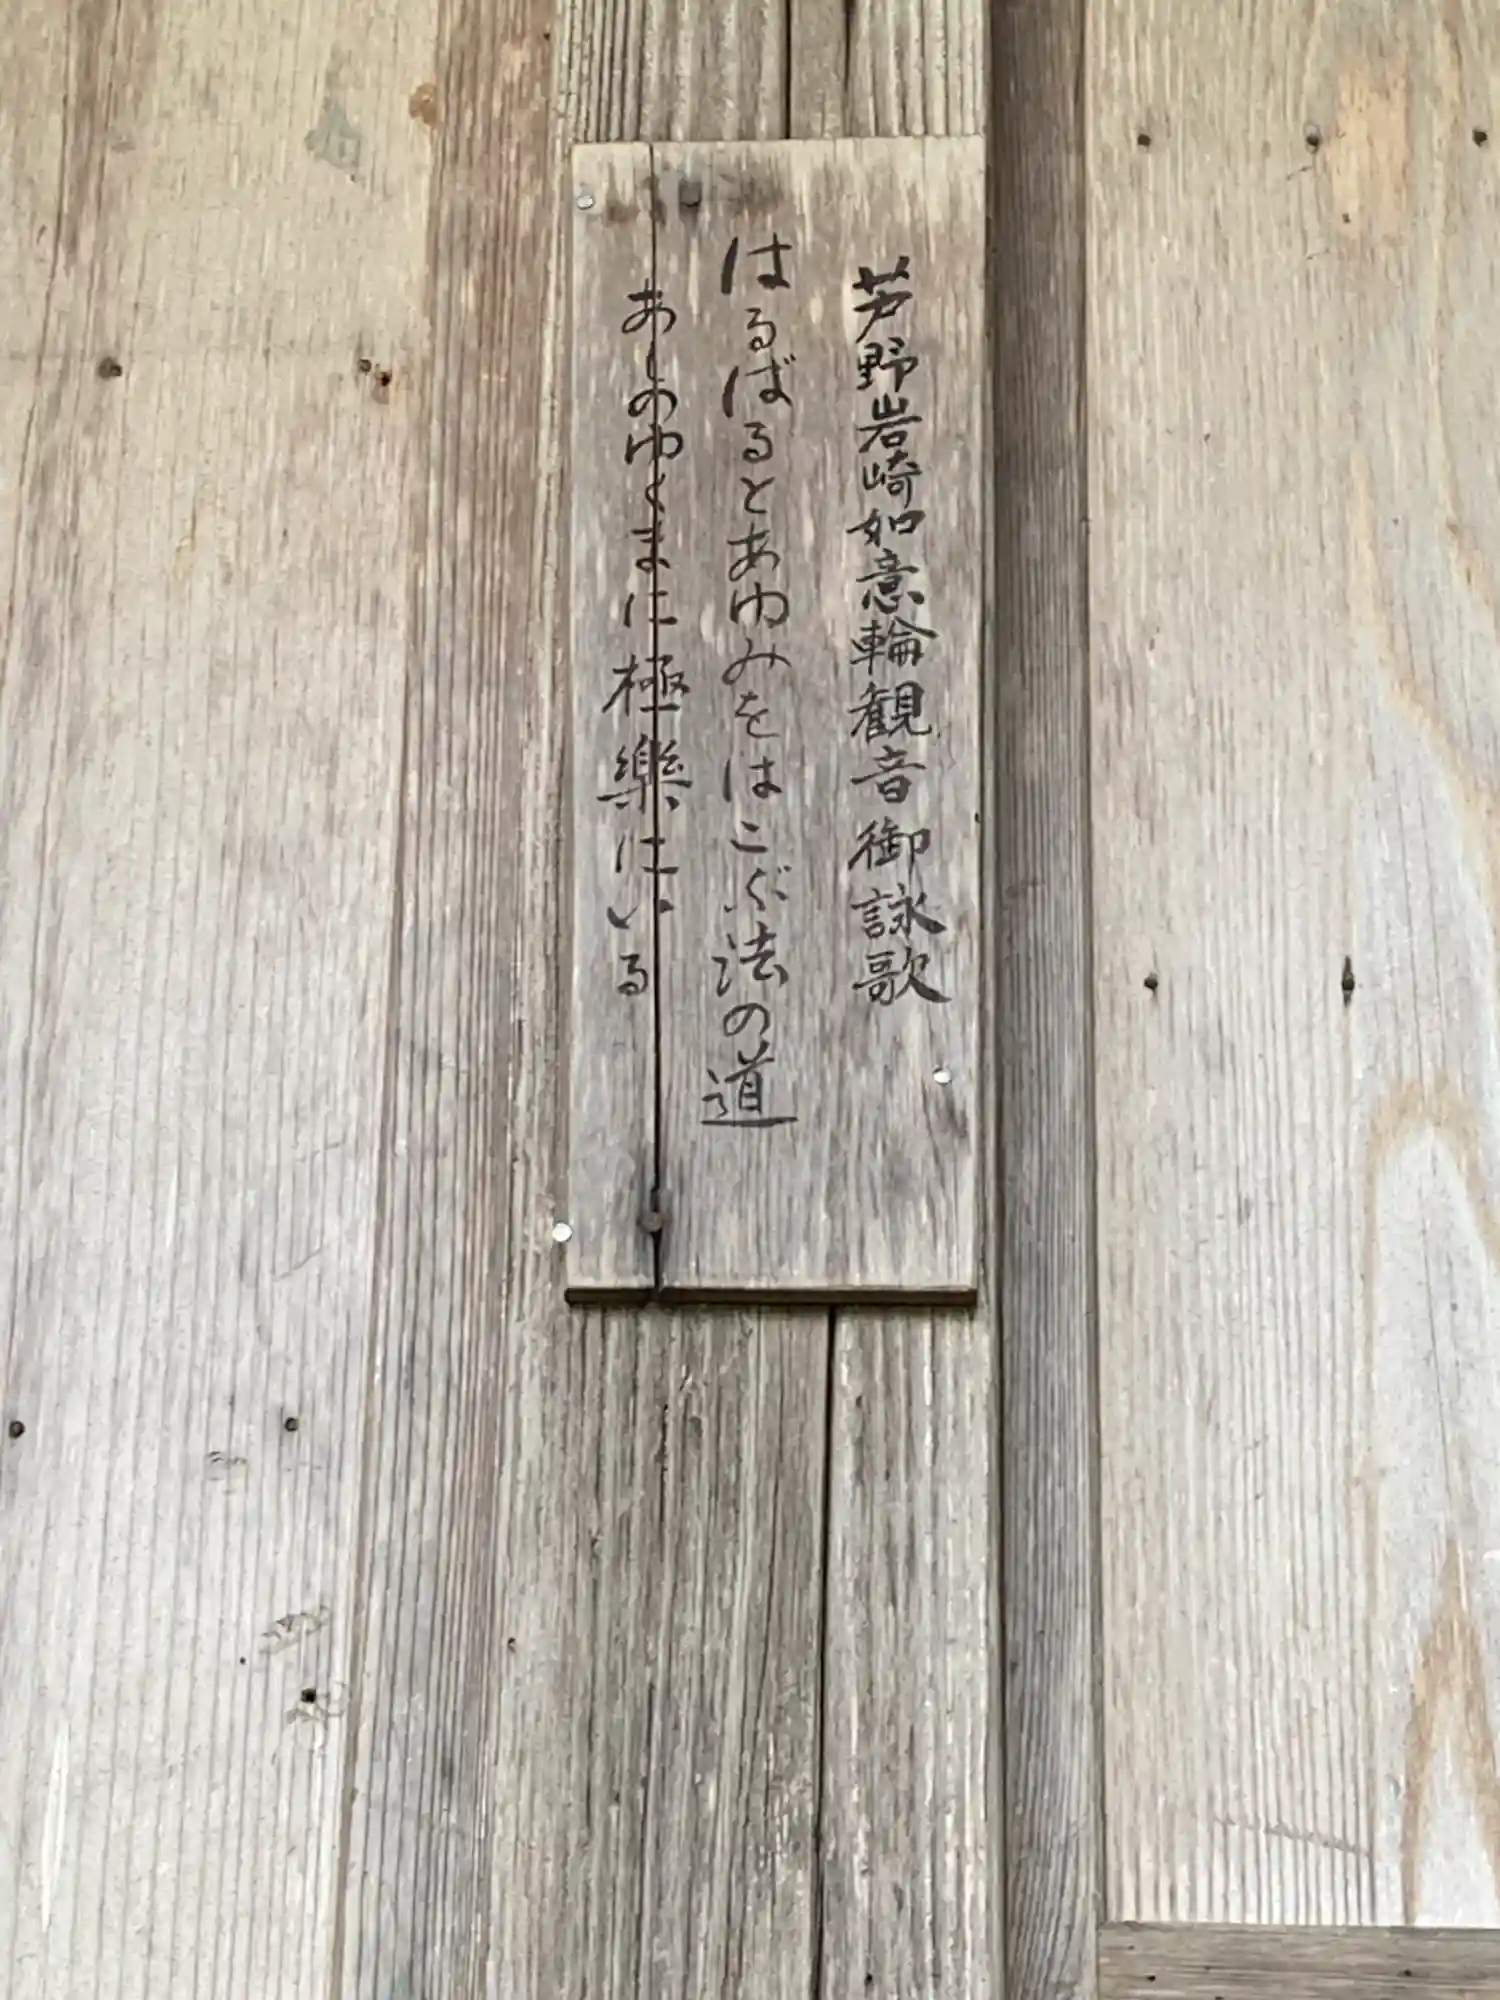 芦野岩崎如意輪観音御詠歌
はるばるとあゆみをはこぶ法の道
あしのゆくまに極樂にいる